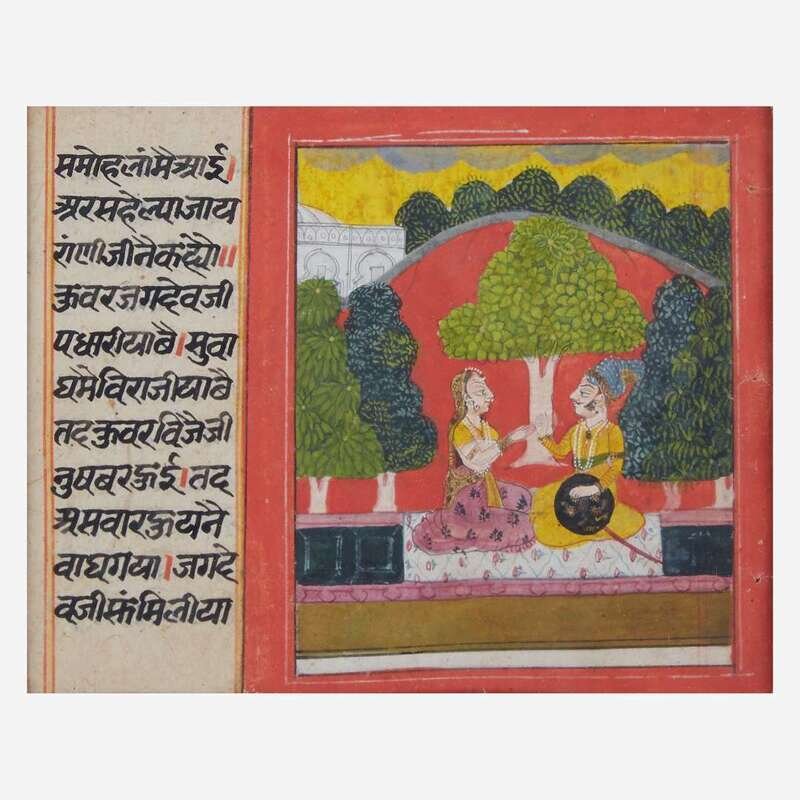 समोहलांमैआई।
अरसहेल्याजाय
रांणीजीनैकंह्यो॥
कुवरजगदेवजी
पधारीयाबै।सुवा
घमैविराजीयाबै
तदकुवरविजैजी
नुषबरऊई।तद
असवारऊयनै
वाघगया।जगदे
वजीसंमिलीया